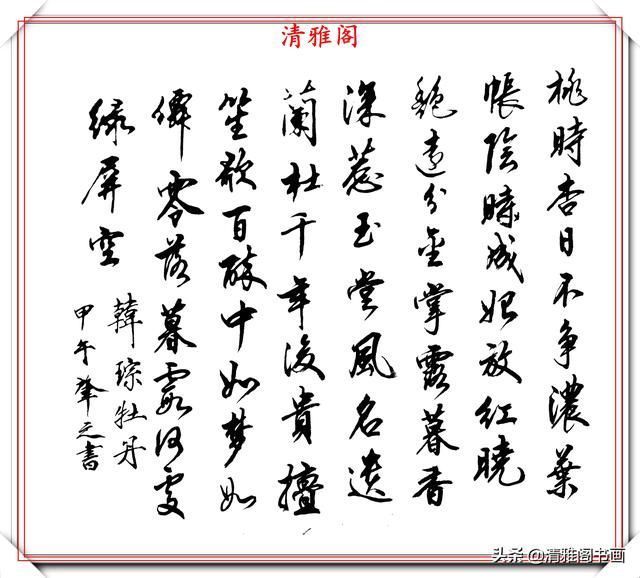 清雅阁
桃時杏日不争濃葉
帳陰時成始放紅曉
艷遠分金掌露暮香
深惹玉堂風名遺
蘭杜千年後貴擅
笙歌百醉中如夢如
僊零落暮霞何處
綠屏空
韓琮牡丹
甲午肇之書
头条@清雅阁书画